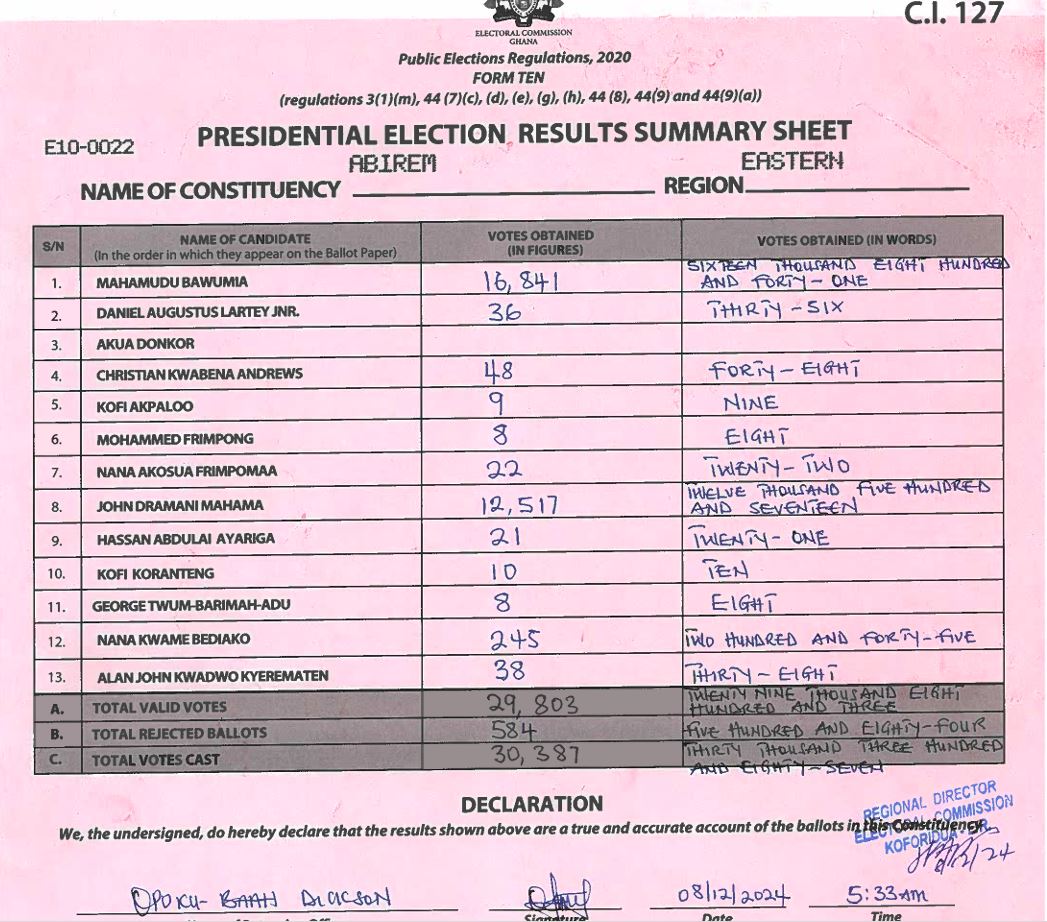 C.I. 127
ELECTORAL COMMISSION
GHANA
Public Elections Regulations, 2020
FORM TEN
(regulations 3(1)(m), 44 (7)(c), (d), (e), (g), (h), 44 (8), 44(9) and 44(9)(a))
E10-0022 PRESIDENTIAL ELECTION RESULTS SUMMARY SHEET
ABIREM EASTERN
NAME OF CONSTITUENCY REGION
S/N NAME OF CANDIDATE (In the order in which they appear on the Ballot Paper) VOTES OBTAINED (IN FIGURES) VOTES OBTAINED (IN WORDS)
1. MAHAMUDU BAWUMIA 16,841 SIXTEEN THOUSAND EIGHT HUNDRED AND FORTY-ONE
2. DANIEL AUGUSTUS LARTEY JNR. 36 THIRTY-SIX
3. AKUA DONKOR
4. CHRISTIAN KWABENA ANDREWS 48 FORTY-EIGHT
5. KOFI AKPALOO 9 NINE
6. MOHAMMED FRIMPONG 8 EIGHT
7. NANA AKOSUA FRIMPOMAA 22 TWENTY-TWO
8. JOHN DRAMANI MAHAMA 12,517 TWELVE THOUSAND FIVE HUNDRED AND SEVENTEEN
9. HASSAN ABDULAI AYARIGA 21 TWENTY-ONE
10. KOFI KORANTENG 10 TEN
11. GEORGE TWUM-BARIMAH-ADU 8 EIGHT
12. NANA KWAME BEDIAKO 245 TWO HUNDRED AND FORTY-FIVE
13. ALAN JOHN KWADWO KYEREMATEN 38 THIRTY-EIGHT
A. TOTAL VALID VOTES 29,803 TWENTY NINE THOUSAND EIGHT HUNDRED AND THREE
B. TOTAL REJECTED BALLOTS 584 FIVE HUNDRED AND EIGHTY-FOUR
C. TOTAL VOTES CAST 30,387 THIRTY THOUSAND THREE HUNDRED AND EIGHTY-SEVEN
DECLARATION
We, the undersigned, do hereby declare that the results shown above are a true and accurate account of the ballots in this Constituency
REGIONAL DIRECTOR
ELECTORAL COMMISSION
KOFORIDUA - ER
OPOKU-BAAH DICKSON 08/12/2024 5:33AM
Signature Date Time